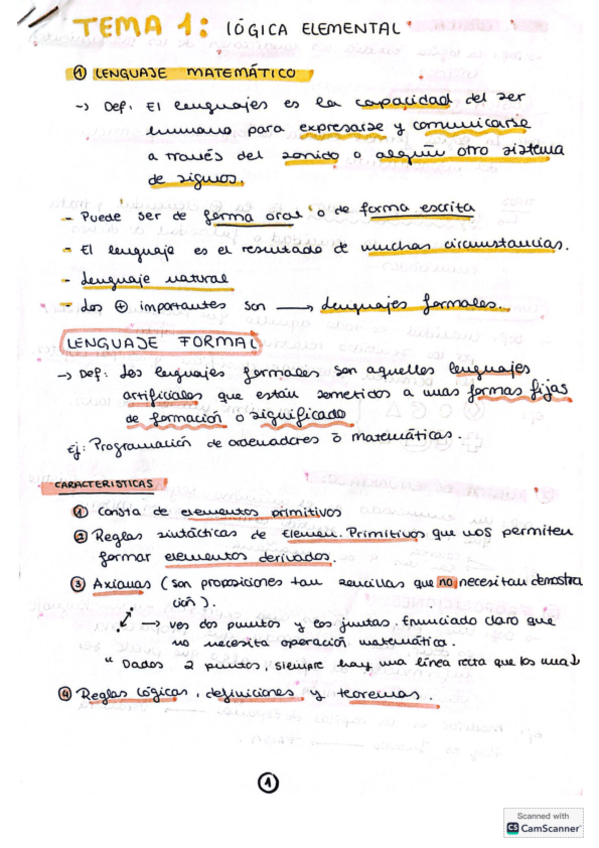 TEMA 1: LÓGICA ELEMENTAL
① LENGUAJE MATEMÁTICO
-> Def: El lenguajes es la capacidad del ser
humano para expresarse y comunicarse
a través del sonido o algún otro sistema
de signos.
- Puede ser de forma oral o de forma escrita
- El lenguaje es el resultado de muchas circunstancias.
- Lenguaje natural
- Los ⊕ importantes son ⟶ Lenguajes formales.
LENGUAJE FORMAL
-> Def: Los lenguajes formales son aquellos lenguajes
artificiales que están sometidos a unas formas fijas
de formación o significado
Ej: Programación de ordenadores o matemáticas.
CARACTERISTICAS
① Consta de elementos primitivos
② Reglas sintácticas de Elemen. Primitivos que nos permiten
formar elementos derivados.
③ Axiomas (son proposiciones tan sencillas que no necesitan demostra
ción).
→ ves dos puntos y los juntas. Enunciado claro que
no necesita operación matemática.
" Dados 2 puntos, siempre hay una línea recta que los una
④ Reglas lógicas, definiciones y teoremas.
①
Scanned with
CS CamScanner